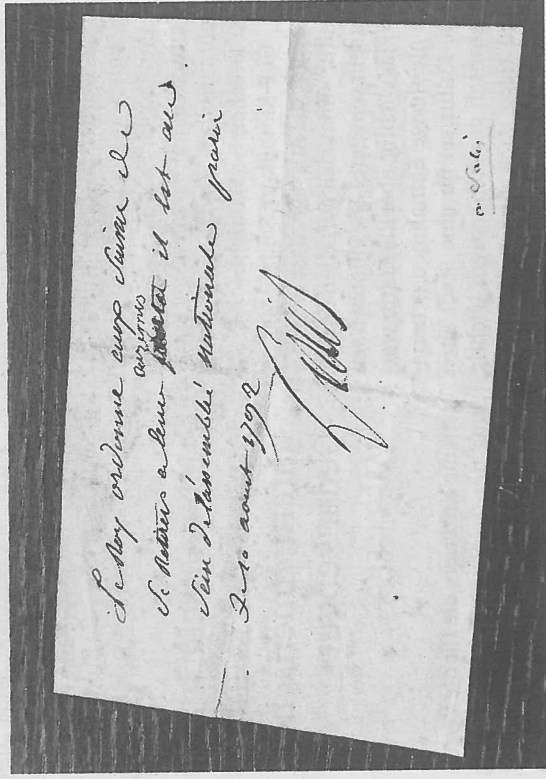 Le Roy ordonne aux Suisses de
se retirer a leurs casernes il est au
sein de l'assemblée nationale paris
le 10 aoust 1792
Louis